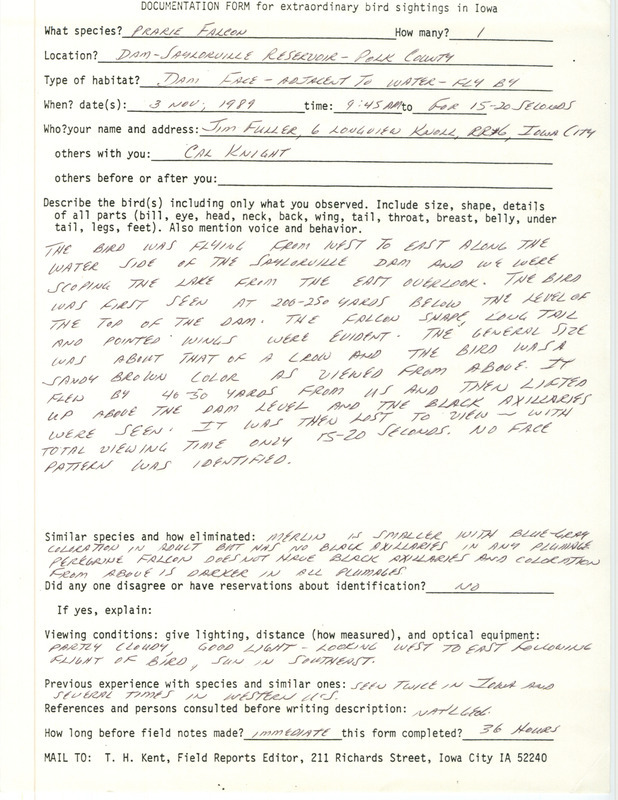 DOCUMENTATION FORM for extraordinary bird sightings in Iowa
What species? PRARIE FALCON How many? 1
Location? DAM-SAYLORVILLE RESERVOIR-POLK COUNTY
Type of habitat? DAM FACE-ADJACENT TO WATER-FLY BY
When? date(s): 3 NOV, 1989 time: 9:45 AM to FOR 15-20 SECONDS
Who?your name and address: JIM FULLER, 6 LONGVIEW KNOLL, RR#6, IOWA CITY
others with you: CAL KNIGHT
others before or after you:
Describe the bird(s) including only what you observed. Include size, shape, details
of all parts (bill, eye, head, neck, back, wing, tail, throat, breast, belly, under
tail, legs, feet). Also mention voice and behavior.
THE BIRD WAS FLYING FROM WEST TO EAST ALONG THE
WATER SIDE OF THE SAYLORVILLE DAM AND WE WERE
SCOPING THE LAKE FROM THE EAST OVERLOOK. THE BIRD
WAS FIRST SEEN AT 200-250 YARDS BELOW THE LEVEL OF
THE TOP OF THE DAM. THE FALCON SHAPE, LONG TAIL
AND POINTED WINGS WERE EVIDENT. THE GENERAL SIZE
WAS ABOUT THAT OF A CROW AND THE BIRD WAS A
SANDY BROWN COLOR AS VIEWED FROM ABOVE. IT
FLEW BY 40-50 YARDS FROM US AND THEN LIFTED
UP ABOVE THE DAM LEVEL AND THE BLACK AXILLARIES
WERE SEEN. IT WAS THEN LOST TO VIEW - WITH
TOTAL VIEWING TIME ONLY 15-20 SECONDS. NO FACE
PATTERN WAS IDENTIFIED.
Similar species and how eliminated: MERLIN IS SMALLER WITH BLUE-GRAY
COLORATION IN ADULT BUT HAS NO BLACK AXILLARIES IN ANY PLUMAGE.
PEREGRINE FALCON DOES NOT HAVE BLACK AXILLARIES AND COLORATION
FROM ABOVE IS DARKER IN ALL PLUMAGES
Did any one disagree or have reservations about identification? NO
If yes, explain:
Viewing conditions: give lighting, distance (how measured), and optical equipment:
PARTLY CLOUDY, GOOD LIGHT - LOOKING WEST TO EAST FOLLOWING
FLIGHT OF BIRD, SUN IN SOUTHEAST.
Previous experience with species and similar ones: SEEN TWICE IN IOWA AND
SEVERAL TIMES IN WESTERN U.S.
References and persons consulted before writing description: NAT'L GEO.
How long before field notes made? IMMEDIATE this form completed? 36 HOURS
MAIL TO: T. H. Kent, Field Reports Editor, 211 Richards Street, Iowa City IA 52240